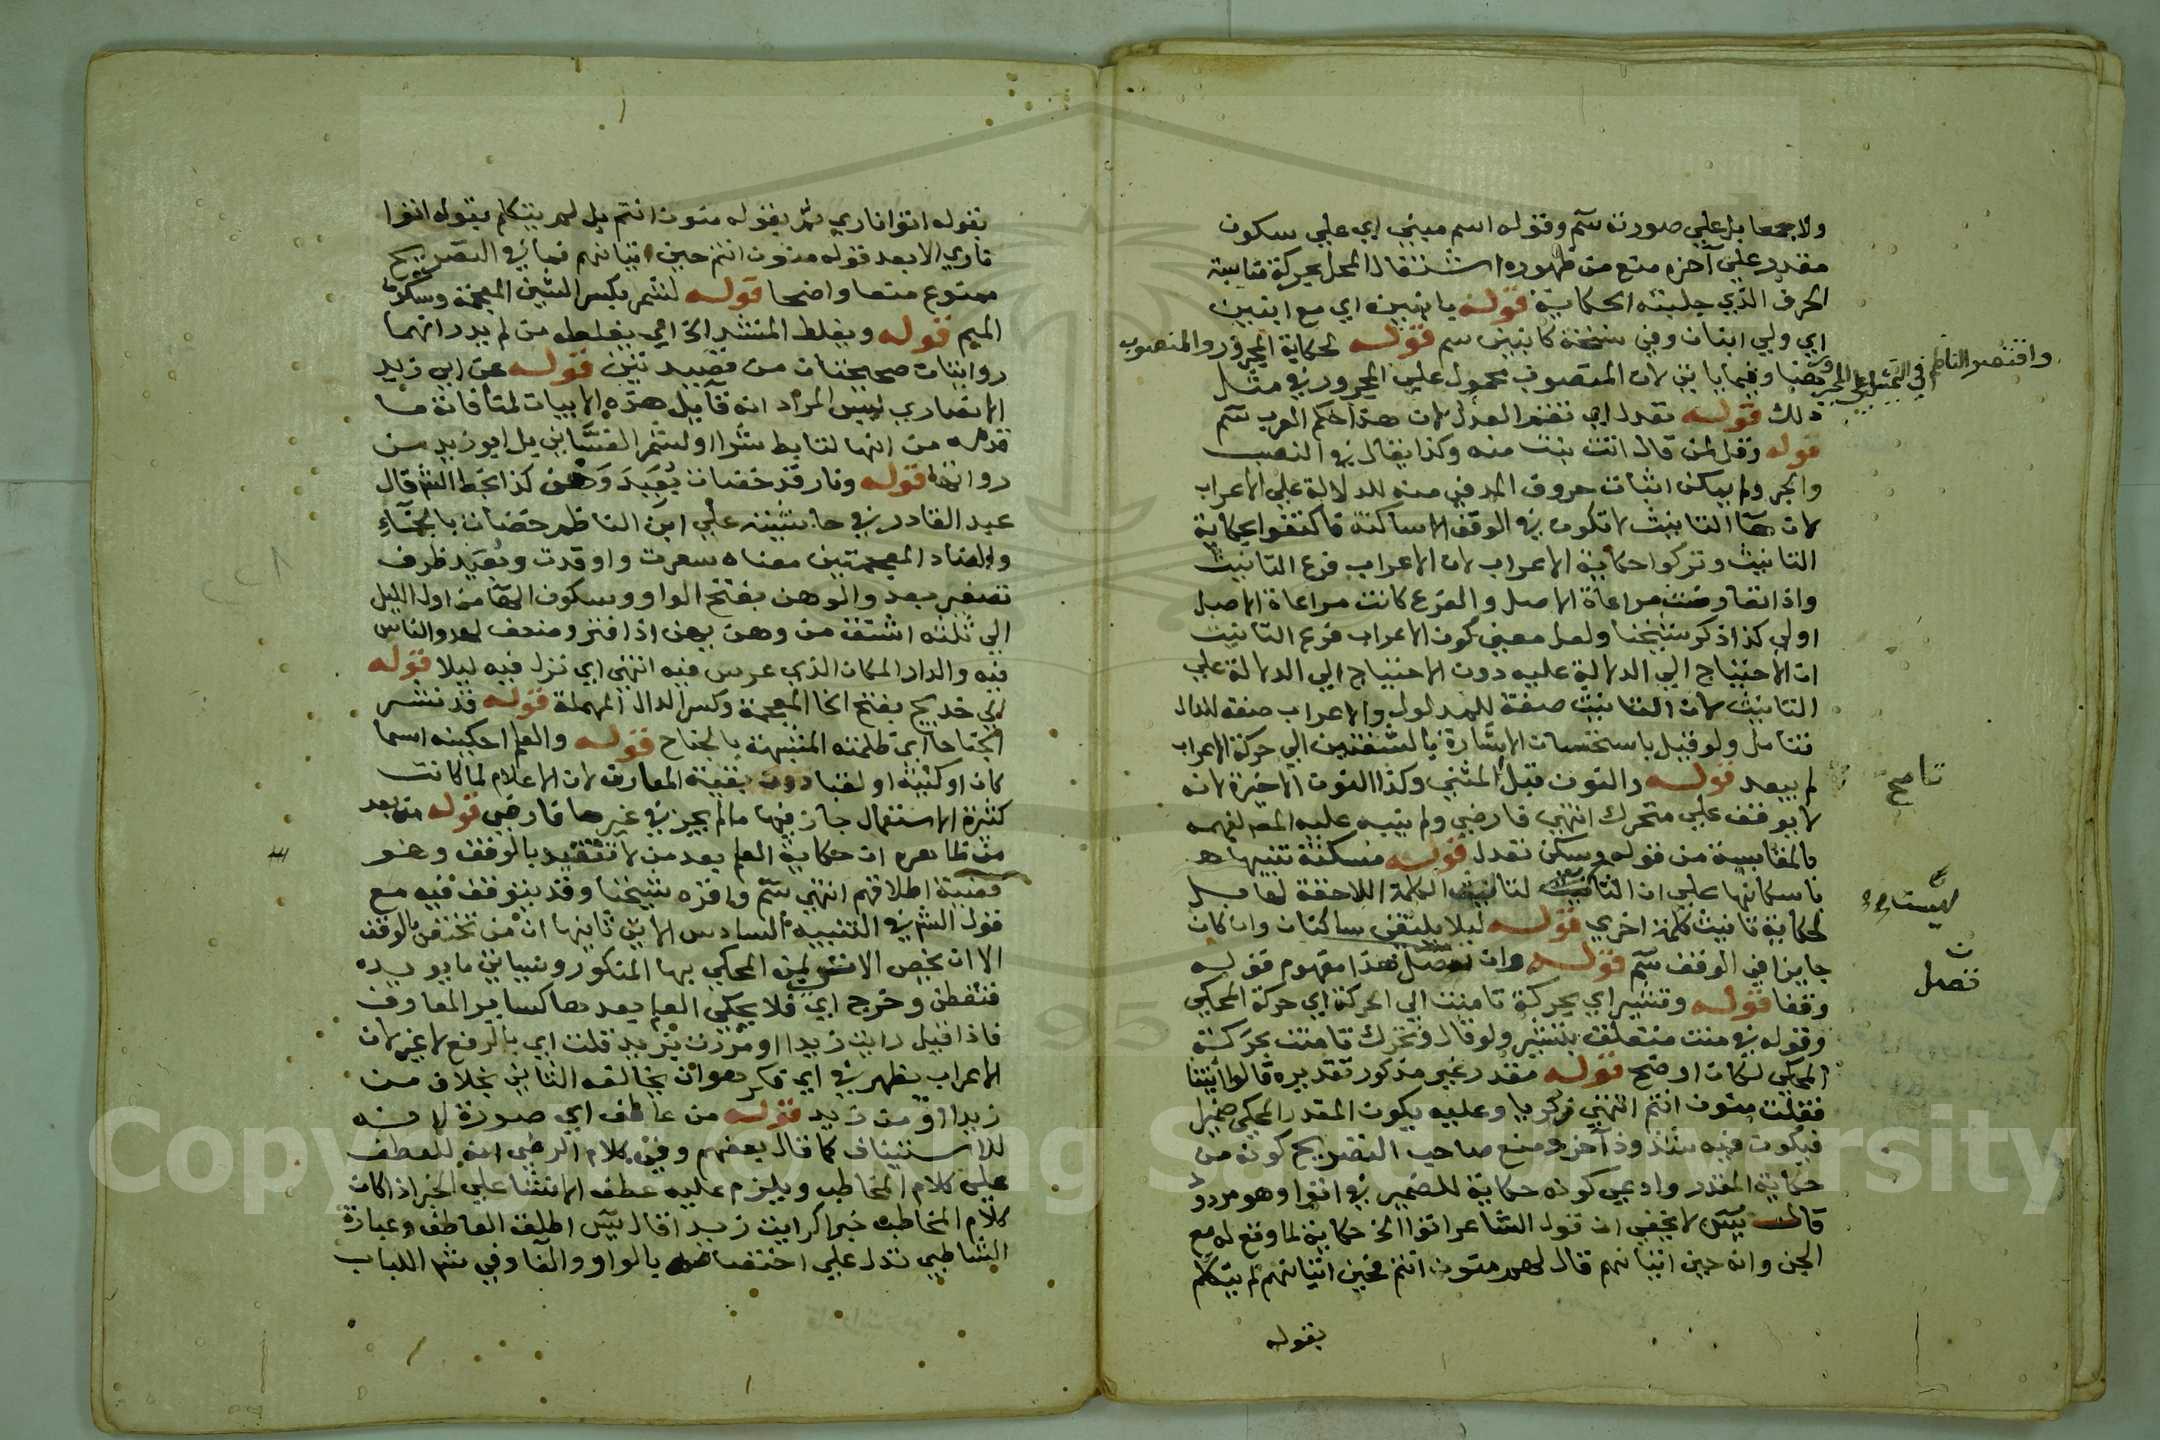 ولا جمعا بل علي صورته سم وقوله اسم مبني اي علي سكون
مقدر علي آخره منع من ظهوره اشتغال المحل بحركة مناسبة
الحرف الذي جلبته الحكاية قوله بابنين اي مع ابنين
اي ولي ابنان وفي نسخة كابنين سم قوله لحكاية المجرور والمنصوب
واقتصر الناظم في التمثيل علي المجرور
هنا وفيما ياتي لان المنصوب محمول علي المجرور في مثل
ذلك قوله تعدل اي تقم العدل لان هذا حكم العرب سم
قوله وقل لمن قال اتت بنت منه وكذا يقال في النصب
والجر ولم يمكن اثبات حروف المد في منه للدلالة علي الاعراب
لان هآ التانيث لا تكون في الوقف الا ساكنة فاكتفوا بحكاية
التانيث وتركوا حكاية الاعراب لان الاعراب فرع التانيث
واذا تعارضت مراعاة الاصل والفرع كانت مراعاة الاصل
اولي كذا ذكر شيخنا ولعل معني كون الاعراب فرع التانيث
ان الاحتياج الي الدلالة عليه دون الاحتياج الي الدلالة علي
التانيث لان التانيث صفة للمدلول والاعراب صفة للدال
فتامل ولو قيل باستحسان الاشارة بالشفتين الي حركة الاعراب
لم يبعد قوله والنون قبل المثني وكذا النون الاخيرة لانه
لا يوقف علي متحرك انتهي فارضي ولم ينبه عليه المص لفهمه
بالمقايسة من قوله وسكن تعدل قوله مسكنة تنبيها
باسكانها علي ان التا ليست لتانيث الكلمة اللاحقة لها بل
لحكاية تانيث كلمة اخري قوله ليلا يلتقي ساكنان وان كان
جايزا في الوقف سم قوله وان تصل هذا مفهوم قوله
وقفا قوله وتشير اي بحركة تا منت الي الحركة اي حركة المحكي
وقوله في منت متعلق بتشير ولو قال وتحرك تا منت بحركة
المحكي لكان اوضح قوله مقدر غير مذكور تقديره قالوا اتينا
فقلت منون انتم انتهي زكريا وعليه يكون المقدر المحكي ضمير
فيكون فيه شذوذ آخر ومنع صاحب التصريح كونه من
حكاية المقدر وادعي كونه حكاية للضمير في اتوا وهو مردود
قال يس لا يخفي ان قول الشاعر اتوا الخ حكاية لما وقع له مع
الجن وانه حين اتيانهم قال لهم منون انتم فحين اتيانهم لم يتكلم
بقوله
ناصح
ليست
تصل
بقوله اتوا ناري ثم بقوله منون انتم بل لم يتكلم بقوله اتوا
ناري الا بعد قوله منون انتم حين اتيانهم فما في التصريح
ممنوع منعا واضحا قوله لشمر بكسر الشين المعجمة وسكون
الميم قوله ويغلط المنشد الخ اي يغلطه من لم يدر انهما
روايتان صحيحتان من قصيدتين قوله عن ابي زيد
الانصاري ليس المراد انه قايل هذه الابيات لمنافاته ما
قدمه من انها لتابط شرا او لشمر الغساني بل ابو زيد من
رواتها قوله ونار قد حضات بُعَيدَ وَهن كذا بخط الش قال
عبد القادر في حاشيته علي ابن الناظم حضات بالحآء
والضاد المعجمتين معناه سعرت واوقدت وبُعَيد ظرف
تصغير بعد والوهن بفتح الواو وسكون الهآ من اول الليل
الي ثلثه اشتق من وهن يهن اذا فتر وضعف لهدو الناس
فيه والدار المكان الذي عرس فيه انتهي اي نزل فيه ليلا قوله
ابي خديج بفتح الخا المعجمة وكسر الدال المهملة قوله قد نشر
الجناحا اي ظلمته المشبهة بالجناح قوله والعلم احكينه اسما
كان او كنية او لقبا دون بقية المعارف لان الاعلام لما كانت
كثيرة الاستعمال جاز فيها ما لم يجز في غيرها فارضي قوله من بعد
من ظاهره ان حكاية العلم بعد من لا تتقيد بالوقف وهو
قضية اطلاقهم انتهي سم واقره شيخنا وقد يتوقف فيه مع
قول الش في التنبيه السادس الاتي ثانيها ان من تختص بالوقف
الا ان يخص الاتي بمن المحكي بها المنكور وسياتي ما يويده
فتفطن وخرج اي فلا يحكي العلم بعدها كساير المعارف
فاذا قيل رايت زيدا او مررت بزيد قلت اي بالرفع لا غير لان
الاعراب يظهر في اي فكرهوا ان يخالفه الثاني بخلاف من
زيدا او من زيد قوله من عاطف اي صورة لانه
للاستيناف كما قال بعضهم وفي كلام الرضي انه للعطف
علي كلام المخاطب ويلزم عليه عطف الانشا علي الخبر اذا كان
كلام المخاطب خبرا كرايت زيدا قال يس اطلق العاطف وعبارة
الشاطبي تدل علي اختصاصه بالواو والفا وفي شرح اللباب